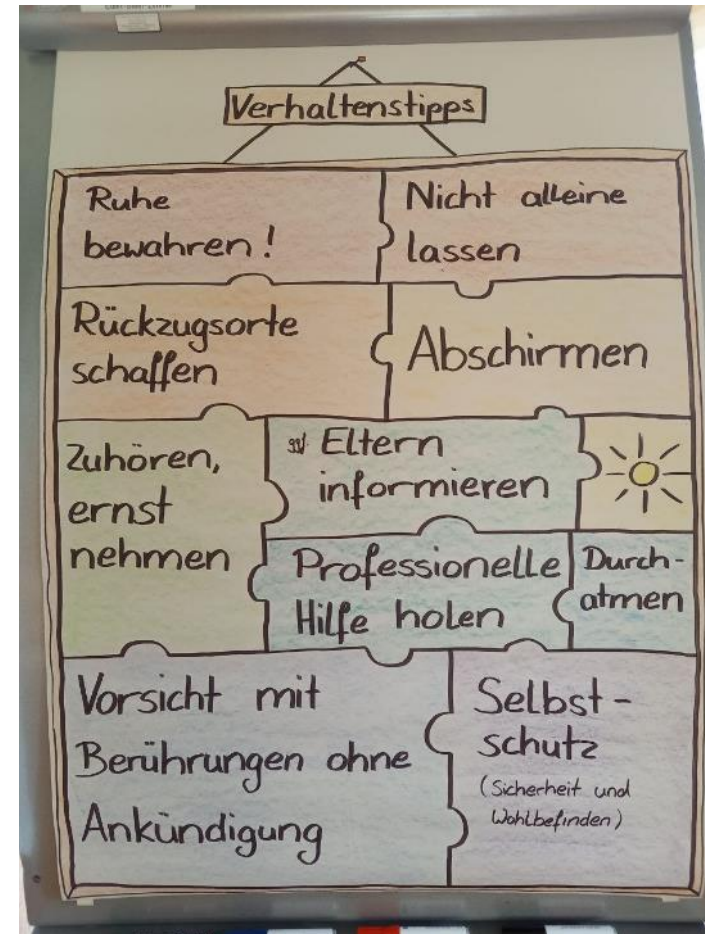 Verhaltenstipps
Ruhe
bewahren!
Nicht alleine
lassen
Rückzugsorte
schaffen
Abschirmen
Zuhören,
ernst
nehmen
Eltern
informieren
Professionelle
Hilfe holen
Durch-
atmen
Vorsicht mit
Berührungen ohne
Ankündigung
Selbst-
schutz
(Sicherheit und
Wohlbefinden)